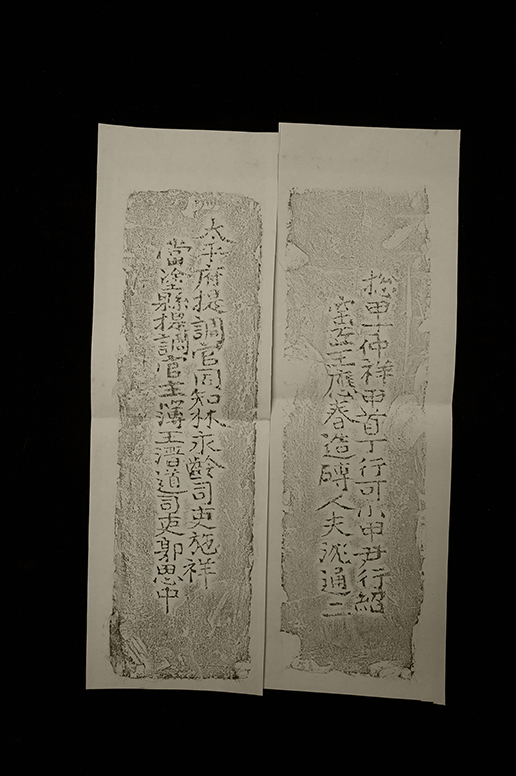 太平府提調官同知林永齡司吏施祥
當塗縣提調官主簿王潛道司吏郭思中
捴甲丁仲祥甲首丁行可小甲尹行紹
窑匠王應春造磚人夫沈通二